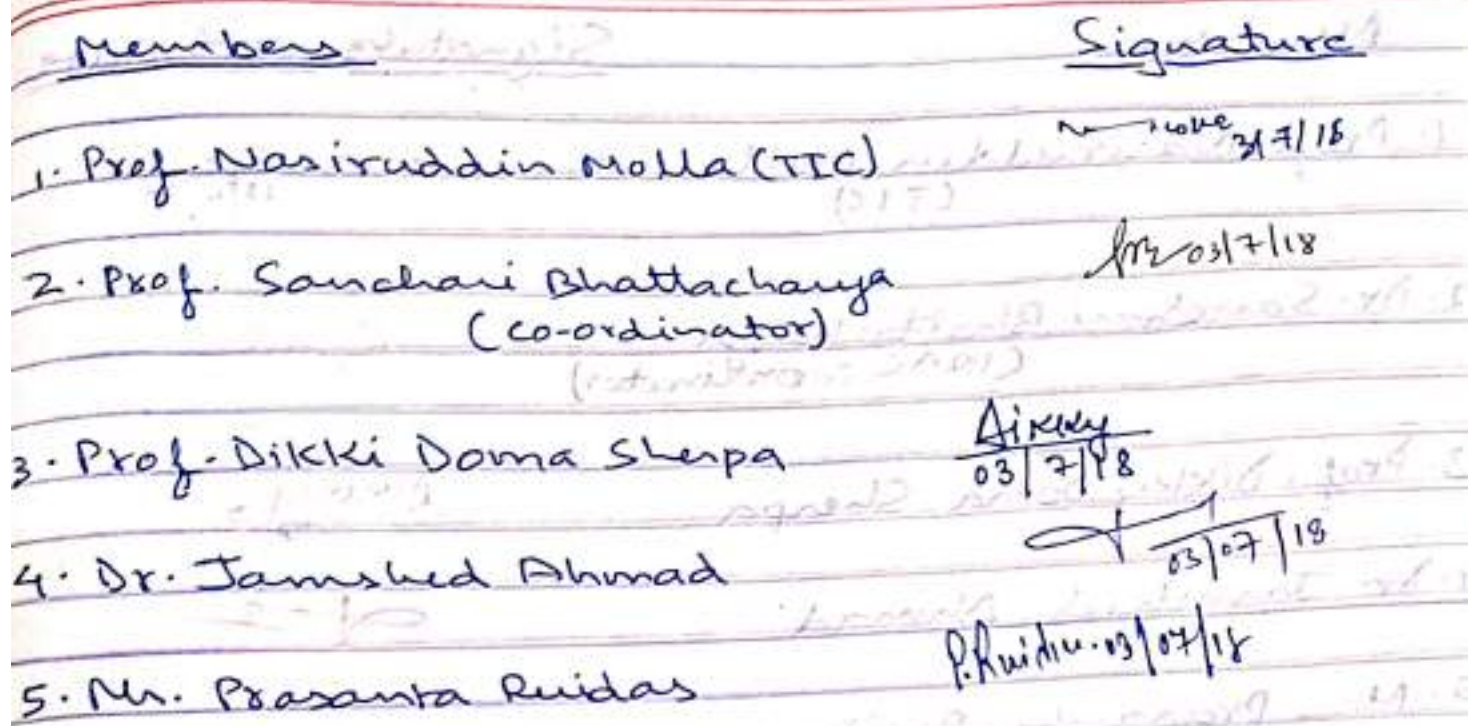 Members Signature
1. Prof. Nasiruddin Molla (TIC) 3/7/18
2. Prof. Sanchari Bhattacharya 03/7/18
(co-ordinator)
3. Prof. Dikki Doma Sherpa
03/7/18
4. Dr. Jamshed Ahmad 03/07/18
5. Mr. Prasanta Ruidas P. Ruidas. 03/07/18